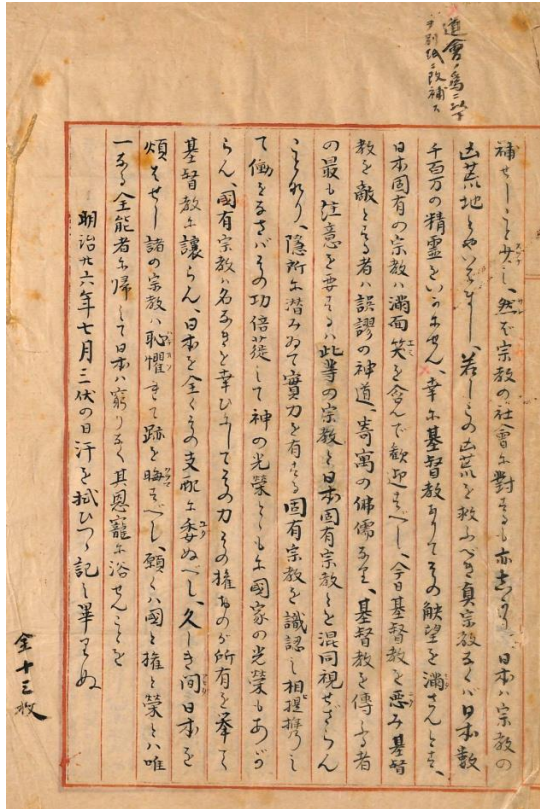 道會ノ為ニ以下
ヲ別紙ニ改補ス
補せしこと少し、然ども宗教の社會に對するも亦志かり、日本ハ宗教の
凶荒地とやいはまし、若しこの凶荒を救ふべき真宗教なくバ日本數
千百万の精霊をいかにせん、幸に基督教ありてその觖望を満さんとす、
日本固有の宗教ハ満面笑を含んで歓迎すべし、今日基督教を悪み基督
教を敵とする者ハ誤謬の神道、寄寓の佛儒なり、基督教を傳ふる者
の最も注意を要するハ此等の宗教と日本固有宗教とを混同視せざらん
ことなり、隠所に潜みゐて實力を有する固有宗教を識認し相提携し
て働をなさバその功倍蓰して神の光榮とともに國家の光榮もあが
らん、國有宗教ハ名なきを幸ひにしてその力その権おのが所有を挙て
基督教に讓らん、日本を全くその支配に委ぬべし、久しき間日本を
煩はせし諸の宗教ハ恥懼きて跡を晦すべし、願くハ國と権と榮とハ唯
一なる全能者に帰して日本ハ窮りなく其恩寵に浴せんことを
明治廿六年七月三伏の日汗を拭ひつゝ記し畢りぬ
全十三枚